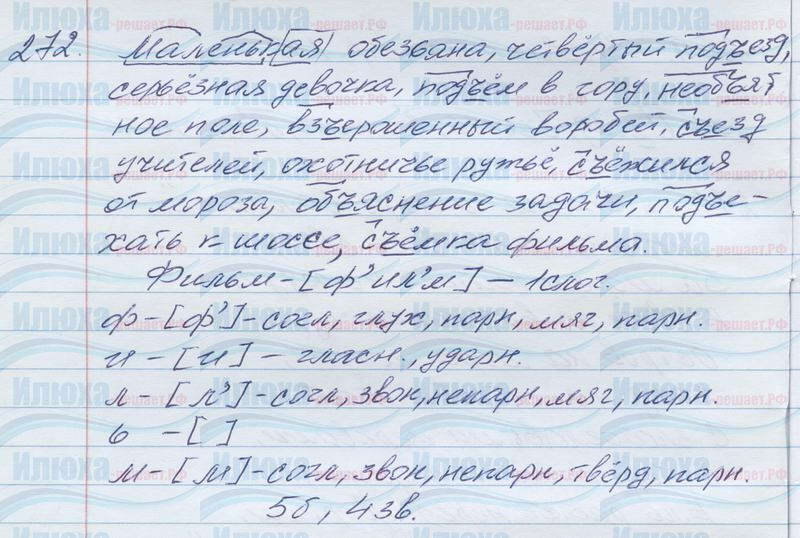 272. Маленькая обезьяна, четвёртый подъезд,
серьёзная девочка, подъём в гору, необъят
ное поле, взъерошенный воробей, съезд
учителей, охотничье ружьё, съёжился
от мороза, объяснение задачи, подъе-
хать к шоссе, съёмка фильма.
Фильм - [ф'ил'м] - 1 слог.
ф - [ф'] - согл, глух, парн, мяг, парн.
и - [и] - гласн., ударн.
л - [л'] - согл, звон, непарн, мяг, парн.
ь - [ ]
м - [м] - согл, звон, непарн, твёрд, парн.
5б, 4зв.